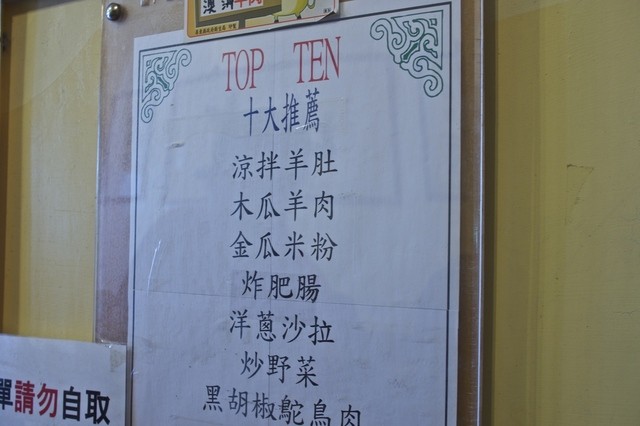 澳洲羊肉
TOP TEN
十大推薦
涼拌羊肚
木瓜羊肉
金瓜米粉
炸肥腸
洋蔥沙拉
炒野菜
黑胡椒鴕鳥肉
單請勿自取